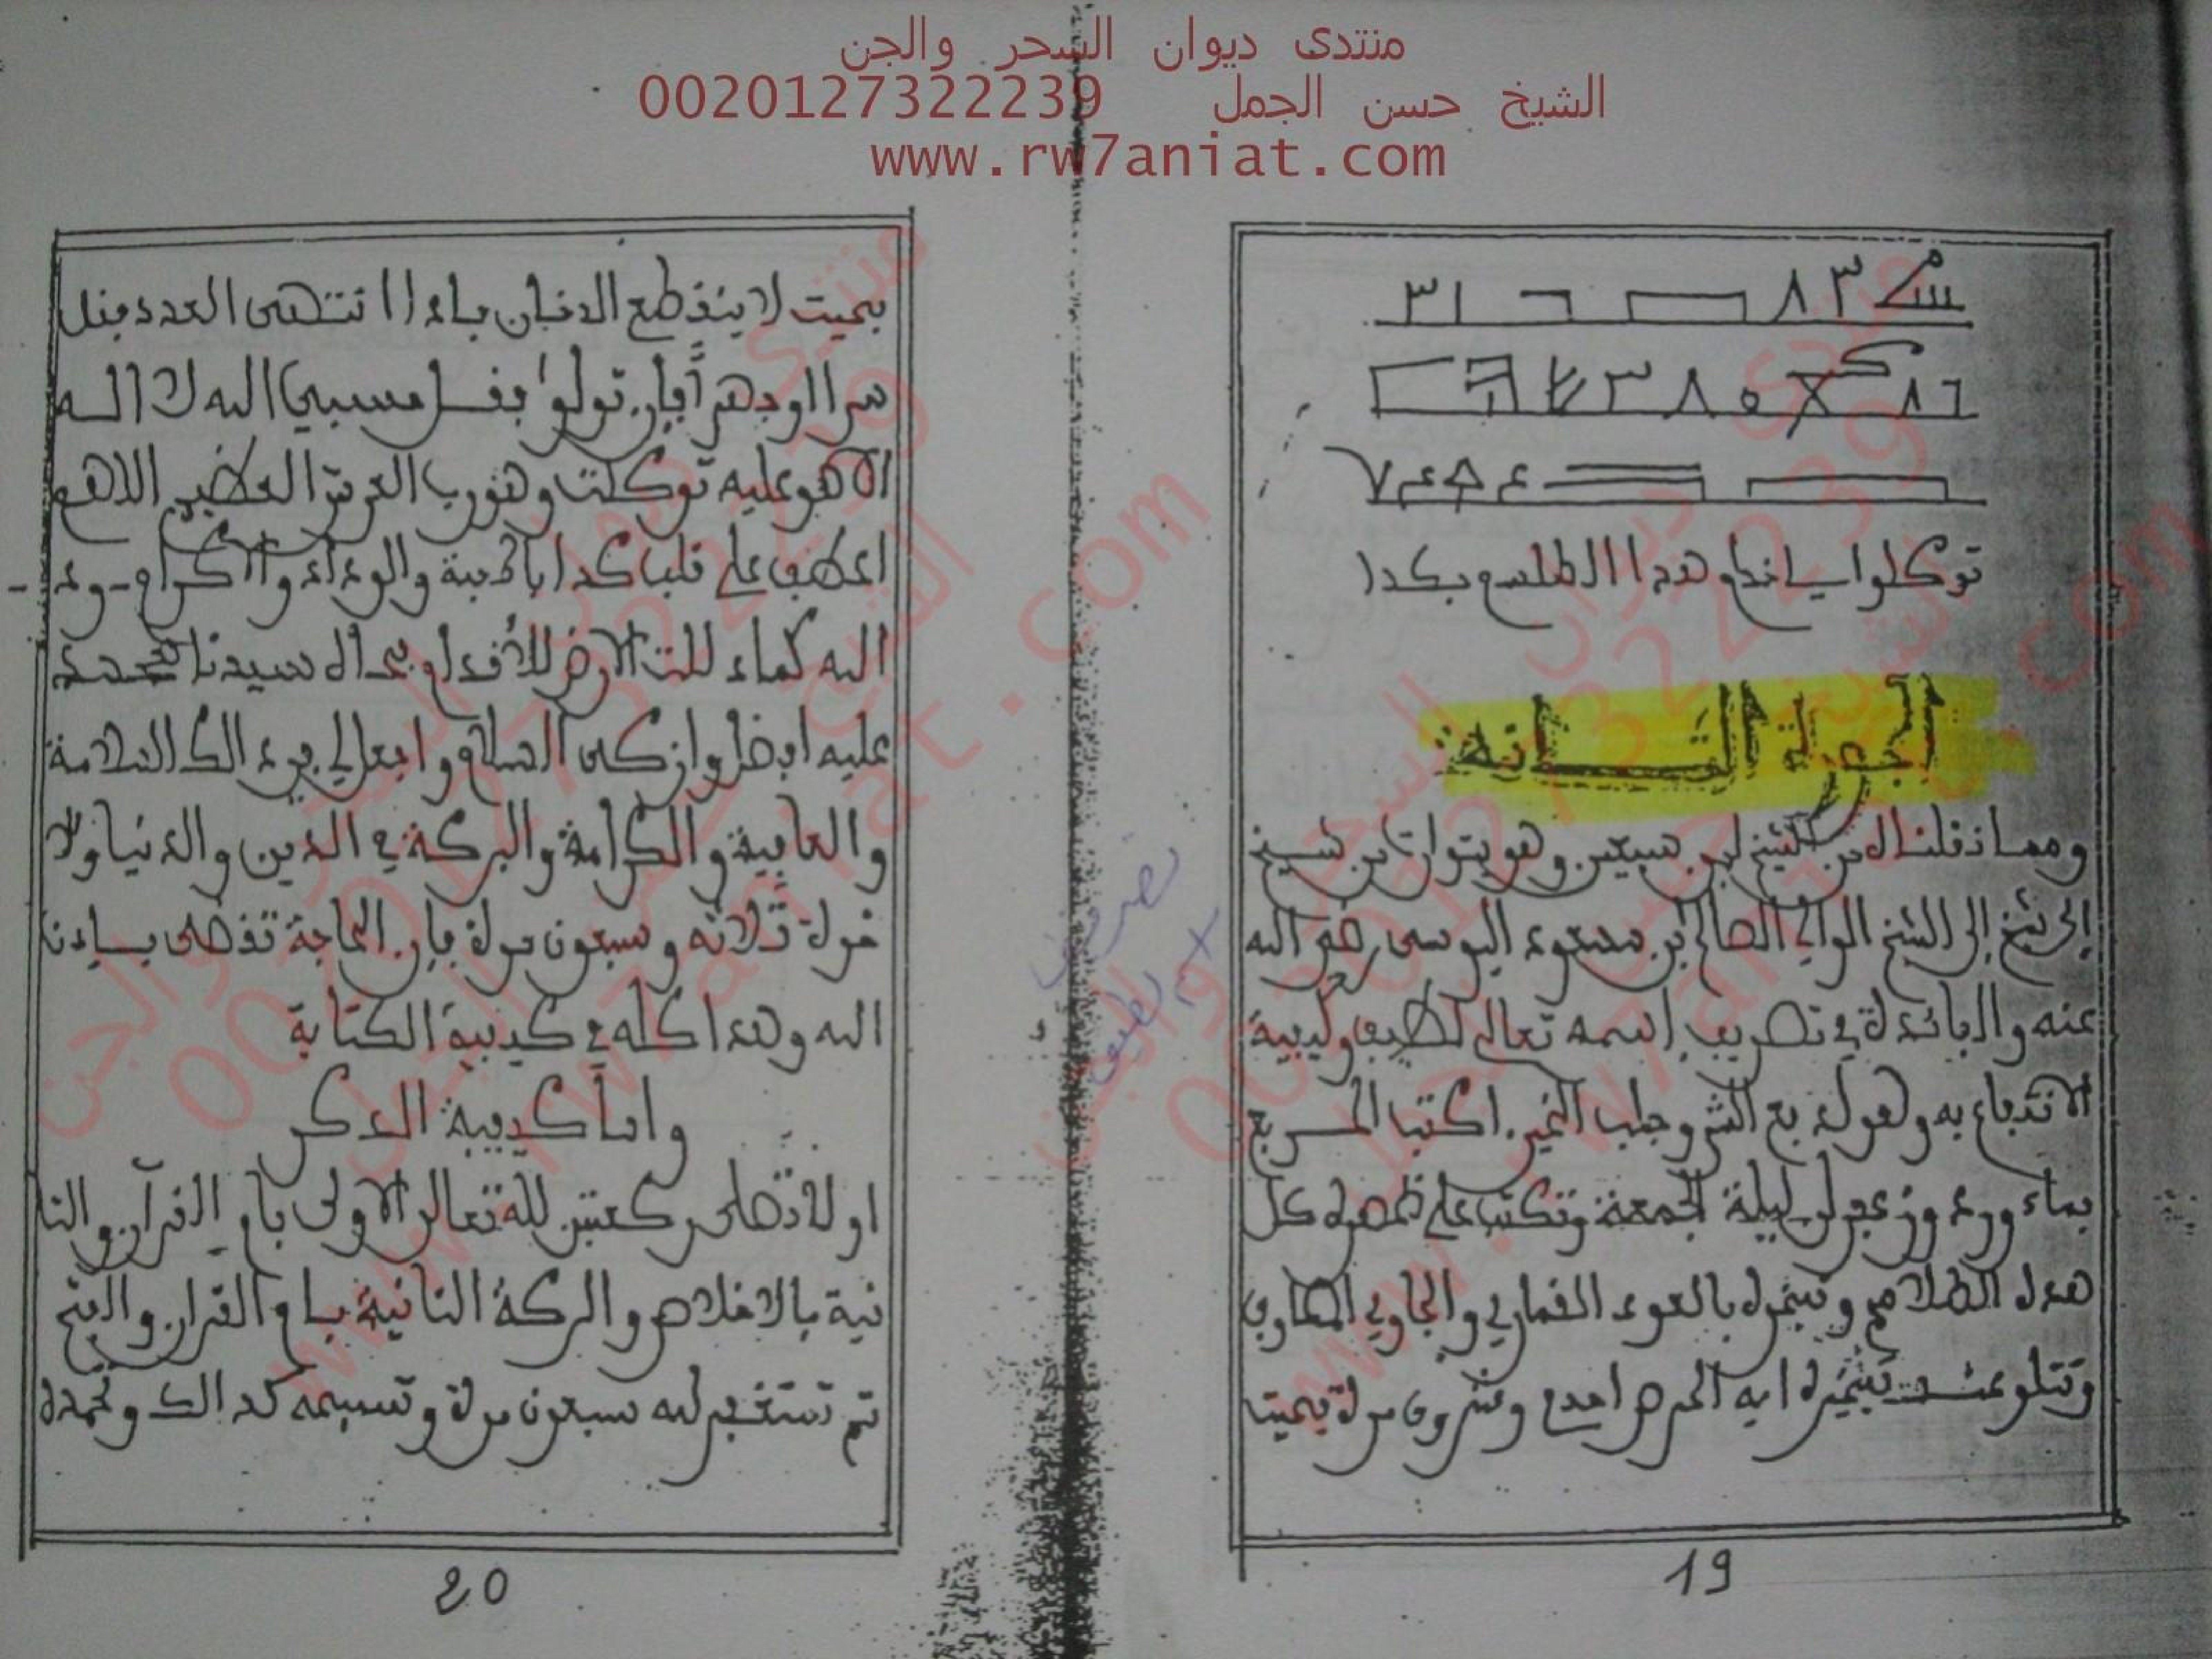 منتدى ديوان السحر والجن
الشيخ حسن الجمل 0020127322239
www.rw7aniat.com
توكلوا يا خدام هدا الطلسم بكدا
الجدولة الثانية
ومما نقلناه من الشيخ ابن سبعين وهو يتوارث من شيخ
إلى شيخ إلى الشيخ الوالي الصالح ابن مسعود اليوسى رضي الله
عنه والفائدة في تصريف اسمه تعالى لطيف وكيفية
الانتفاع به ولدفع الشر وجلب الخير. اكتب المربع
بماء ورد وزعفران ليلة الجمعة وتكتب على ظهره كل
هده الطلاسم وتبخره بالعود القماري والجاوي
وتتلو عند تبخيره ايه الحرص احدى وعشرون مرة بحيث
19
بحيت لا ينقطع الدخان فادا انتهى العدد فقل
سرا اوجهرا فإن تولوا فقل حسبي الله لا اله
الا هو عليه توكلت وهو رب العرش العظيم اللاهم
اعطف على قلب كدا بالمحبة والوداد والاكرام - ود -
الله كماء للت الارض للأقدام بجاه سيدنا محمد
عليه افضل وازكى السلام واجعل لي في دالك السلامة
والعافية والكرامة والبركة في الدين والدنيا ولا
خرة تلاته وسبعون مرة فإن الحاجة تقضى بإدن
الله وهدا كله في كيفية الكتابة
واما كيفية الدكر
اولا تصلى ركعتين لله تعالى الاولى بأم القرآن والثا
نية بالاخلاص والركة الثانية بام القرآن والفتح
تم تستغفر لله سبعون مرة وتسبحه كدالك وتحمده
20